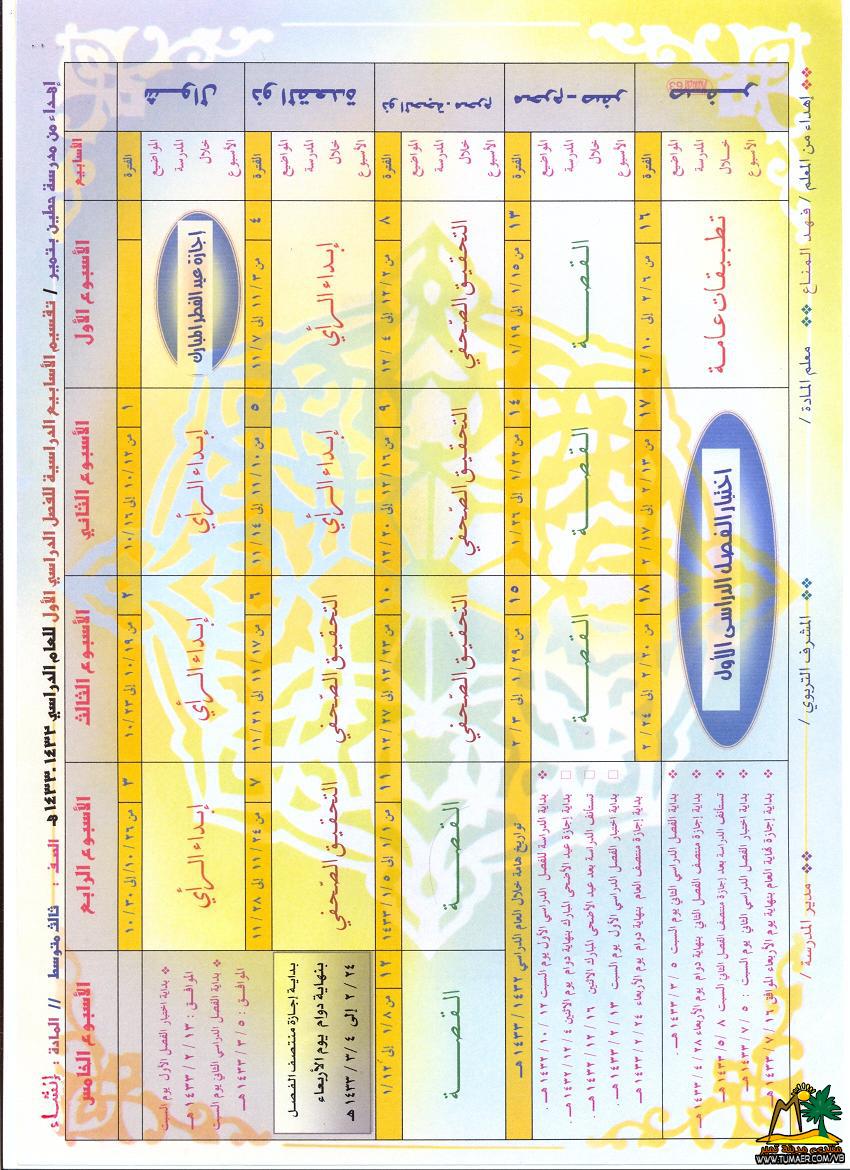 إهداء من مدرسة حطين بتمير / تقسيم الأسابيع الدراسية للفصل الدراسي الأول للعام الدراسي ١٤٣٢-١٤٣٣ هـ الصف : ثالث متوسط // المادة : إنشاء
الأسابيع الأسبوع الأول الأسبوع الثاني الأسبوع الثالث الأسبوع الرابع الأسبوع الخامس
شوال
الفترة ١ من ١٠/١٢ إلى ١٠/١٦ ٢ من ١٠/١٩ إلى ١٠/٢٣ ٣ من ١٠/٢٦ إلى ١٠/٣٠
المواضيع المدرسة خلال الأسبوع
إجازة عيد الفطر المبارك إبداء الرأي إبداء الرأي إبداء الرأي
❖ بداية اختبار الفصل الأول يوم السبت
الموافق : ١٣ / ٢ / ١٤٣٣ هـ
❖ بداية الفصل الدراسي الثاني يوم السبت
الموافق : ٥ / ٣ / ١٤٣٣ هـ
ذو القعدة
الفترة ٤ من ١١/٣ إلى ١١/٧ ٥ من ١١/١٠ إلى ١١/١٤ ٦ من ١١/١٧ إلى ١١/٢١ ٧ من ١١/٢٤ إلى ١١/٢٨
المواضيع المدرسة خلال الأسبوع
إبداء الرأي إبداء الرأي التحقيق الصّحفي التحقيق الصّحفي
بداية إجازة منتصف الفصل
بنهاية دوام يوم الأربعاء
٢/٢٤ إلى ٣/٤ / ١٤٣٣ هـ
ذو الحجة - محرم
الفترة ٨ من ١٢/٢ إلى ١٢/٤ ٩ من ١٢/١٦ إلى ١٢/٢٠ ١٠ من ١٢/٢٣ إلى ١٢/٢٧ ١١ من ١/١ إلى ١/٥ /١٤٣٣ ١٢ من ١/٨ إلى ١/١٢
المواضيع المدرسة خلال الأسبوع
التحقيق الصّحفي التحقيق الصّحفي التحقيق الصّحفي القصة القصة
محرم - صفر
الفترة ١٣ من ١/١٥ إلى ١/١٩ ١٤ من ١/٢٢ إلى ١/٢٦ ١٥ من ١/٢٩ إلى ٢/٣
المواضيع المدرسة خلال الأسبوع
القصة القصة القصة
تواريخ هامة خلال العام الدراسي ١٤٣٢ / ١٤٣٣ هـ
❖ بداية الدراسة للفصل الدراسي الأول يوم السبت ١٢ / ١٠ / ١٤٣٢ هـ .
□ بداية إجازة عيد الأضحى المبارك بنهاية دوام يوم الاثنين ٤ / ١٢ / ١٤٣٢ هـ .
□ تستأنف الدراسة بعد عيد الأضحى المبارك الاثنين ١٦ / ١٢ / ١٤٣٢ هـ .
□ بداية اختبار الفصل الدراسي الأول يوم السبت ١٣ / ٢ / ١٤٣٣ هـ
بداية إجازة منتصف العام بنهاية دوام يوم الأربعاء ٢٤ / ٢ / ١٤٣٣ هـ
صفر
الفترة ١٦ من ٢/٦ إلى ٢/١٠ ١٧ من ٢/١٣ إلى ٢/١٧ ١٨ من ٢/٢٠ إلى ٢/٢٤
المواضيع المدرسة خلال الأسبوع
تطبيقات عامة اختبار الفصل الدراسي الأول
❖ بداية الفصل الدراسي الثاني يوم السبت ٥ / ٣ / ١٤٣٣ هـ .
❖ بداية إجازة منتصف الفصل الثاني بنهاية دوام يوم الأربعاء ٢٨ / ٤ / ١٤٣٣ هـ
❖ تستأنف الدراسة بعد إجازة منتصف الفصل الثاني السبت ٨ / ٥ / ١٤٣٣ هـ
❖ بداية اختبار الفصل الدراسي الثاني يوم السبت : ٥ / ٧ / ١٤٣٣ هـ
❖ بداية إجازة نهاية العام بنهاية يوم الأربعاء الموافق ١٦ / ٧ / ١٤٣٣ هـ .
❖ إهداء من المعلم / فهد المناع ❖ معلم المادة / ❖ المشرف التربوي / ❖ مدير المدرسة /
منتدى مدينة تمير
WWW.TUMAER.COM/VB